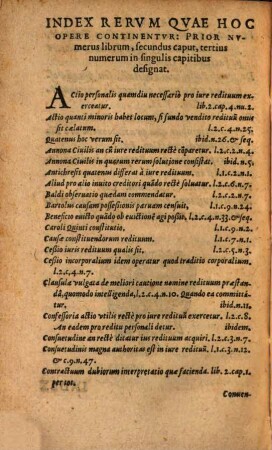 INDEX RERVM QVAE HOC
OPERE CONTINENTVR: PRIOR NV-
merus librum, secundus caput, tertius
numerum in singulis capitibus
designat.
ACtio personalis quamdiu necessariò pro iure redituum ex-
erceatur. lib.2.cap.4.nu.2.
Actio quanti minoris habet locum, si fundo vendito reditus omis-
sit calatum. L.2.c.4.n.25.
Quatenus hoc verum sit. ibid.n.26.& seq.
Annona Ciuilis an cū iure redituum rectè cōparetur. L.2.c.2.n.4.
Annona Ciuilis in quorum rerum solutione consistat. ibid.n.5.
Antichresis quatenus differat à iure redituum. l.1.c.2.n.1.
Aliud pro alio inuito creditori quādo rectè soluatur. l.2.c.6.n.7.
Baldi obseruatio quædam commendatur. l.1.c.2.n.7.
Bartolus causam possessionis paruam censuit. l.1.c.9.n.24.
Beneficio euicto quādo ob euictionē agi possit. l.2.c.4.n.33.& seq.
Caroli Quinti constitutio. l.1.c.9.n.2.
Causæ constituendorum redituum. l.1.c.7.n.1.
Cessio iuris redituum qualis sit. l.1.c.5.n.3.
Cessio incorporalium idem operatur quod traditio corporalium.
l.2.c.4.n.7.
Clausula vulgata de meliori cautione nomine redituum præstan-
dā, quomodo intelligenda, l.2.c.4.n.10. Quando ea committi-
tur. ibid.n.11.
Confessoria actio vtilis rectè pro iure redituū exercetur. L.2.c.8.
An eadem pro reditu personali detur. ibidem.
Consuetudine an rectè dicatur ius redituum acquiri. l.2.c.3.n.7.
Consuetudinis magna authoritas est in iure redituū. l.1.c.3.n.12.
& c.9.n.47.
Contractuum dubiorum interpretatio quæ facienda. lib.2.cap.1.
per tot.
Conuen-